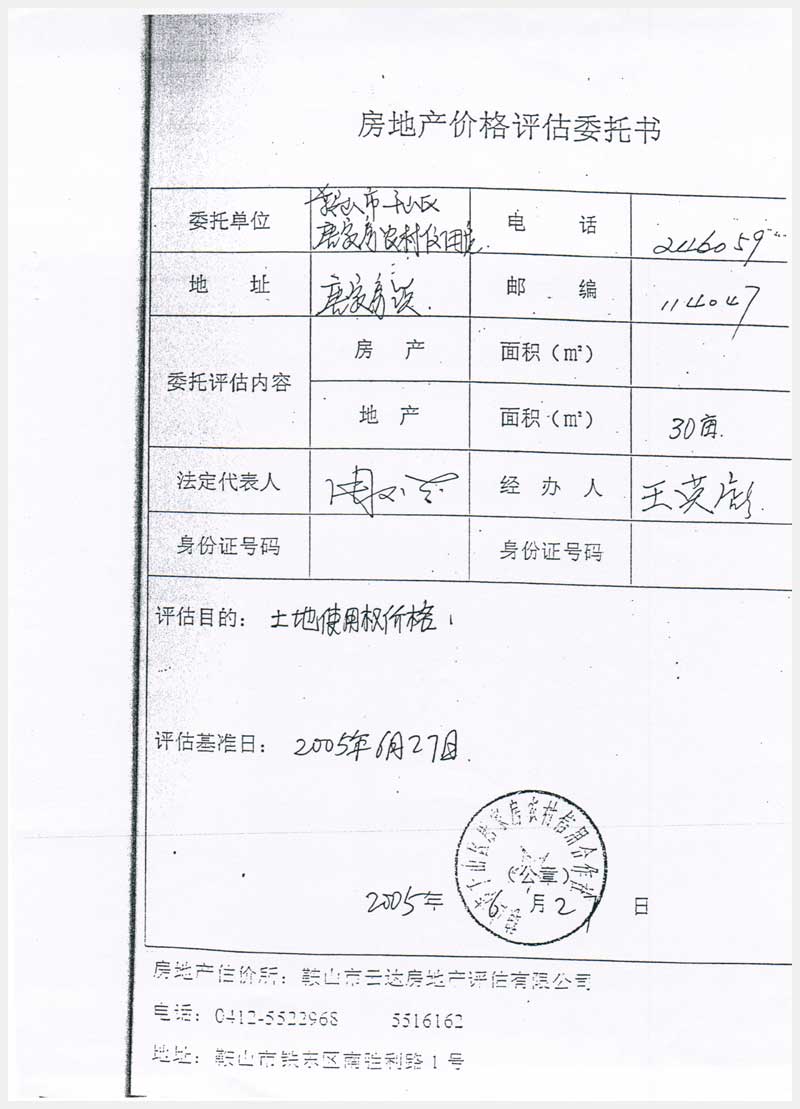 房地产价格评估委托书
委托单位 鞍山市千山区 电 话 246059
唐家房农村信用社
地 址 唐家房镇 邮 编 114047
委托评估内容 房 产 面积(m²)
地 产 面积(m²) 30亩
法定代表人 经 办 人 王英
身份证号码 身份证号码
评估目的: 土地使用权价格
评估基准日: 2005年6月27日
千山区唐家房农村信用合作社
(公章)
2005年 6月2 日
房地产估价所: 鞍山市云达房地产评估有限公司
电话: 0412-5522968 5516162
地址: 鞍山市铁东区南胜利路1号